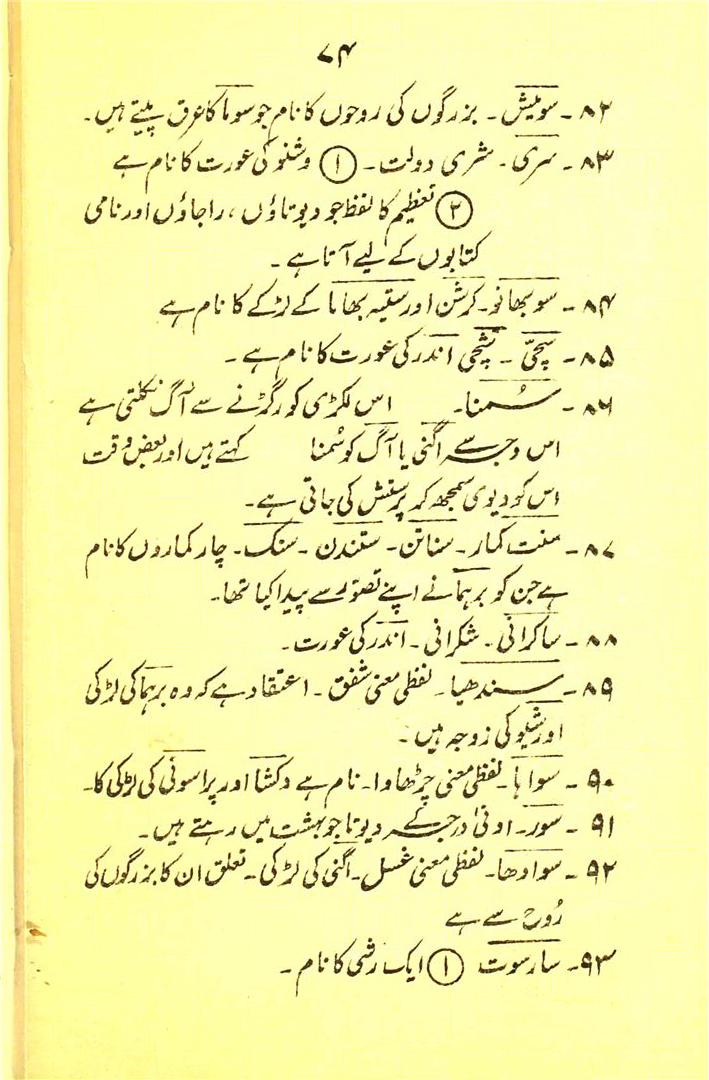 ۷۴
۸۲ ۔ سومیش ۔ بزرگوں کی روحوں کا نام جو سوما کا عرق پیتے ہیں۔
۸۳ ۔ سری ۔ شری دولت ۔ ① وشنو کی عورت کا نام ہے
② تعظیم کا لفظ جو دیوتاؤں، راجاؤں اور نامی
کتابوں کے لیے آتا ہے ۔
۸۴ ۔ سوبھانو ۔ کرشن اور ستیہ بھاما کے لڑکے کا نام ہے
۸۵ ۔ سچیّ ۔ شچی اندر کی عورت کا نام ہے ۔
۸۶ ۔ سُمنا ۔ اس لکڑی کو رگڑنے سے آگ نکلتی ہے
اس وجہ سے اگنی یا آگ کو سُمنا کہتے ہیں اور بعض وقت
اس کو دیوی سمجھ کر پرستش کی جاتی ہے ۔
۸۷ ۔ سنت کمار ۔ سناتن ۔ سنندن ۔ سنک ۔ چار کماروں کا نام
ہے جن کو برہما نے اپنے تصوّر سے پیدا کیا تھا۔
۸۸ ۔ ساکرانی ۔ شکرانی ۔ اندر کی عورت ۔
۸۹ ۔ سندھیا ۔ لفظی معنی شفق ۔ اعتقاد ہے کہ وہ برہما کی لڑکی
اور شیو کی زوجہ ہیں ۔
۹۰ ۔ سواہا ۔ لفظی معنی چڑھاوا ۔ نام ہے دکشا اور پراسوتی کی لڑکی کا۔
۹۱ ۔ سور ۔ ادنیٰ درجے کے دیوتا جو بہشت میں رہتے ہیں ۔
۹۲ ۔ سوادھا ۔ لفظی معنی غسل ۔ اگنی کی لڑکی ۔ تعلق ان کا بزرگوں کی
رُوح سے ہے
۹۳ ۔ سارسوت ① ایک رشی کا نام ۔